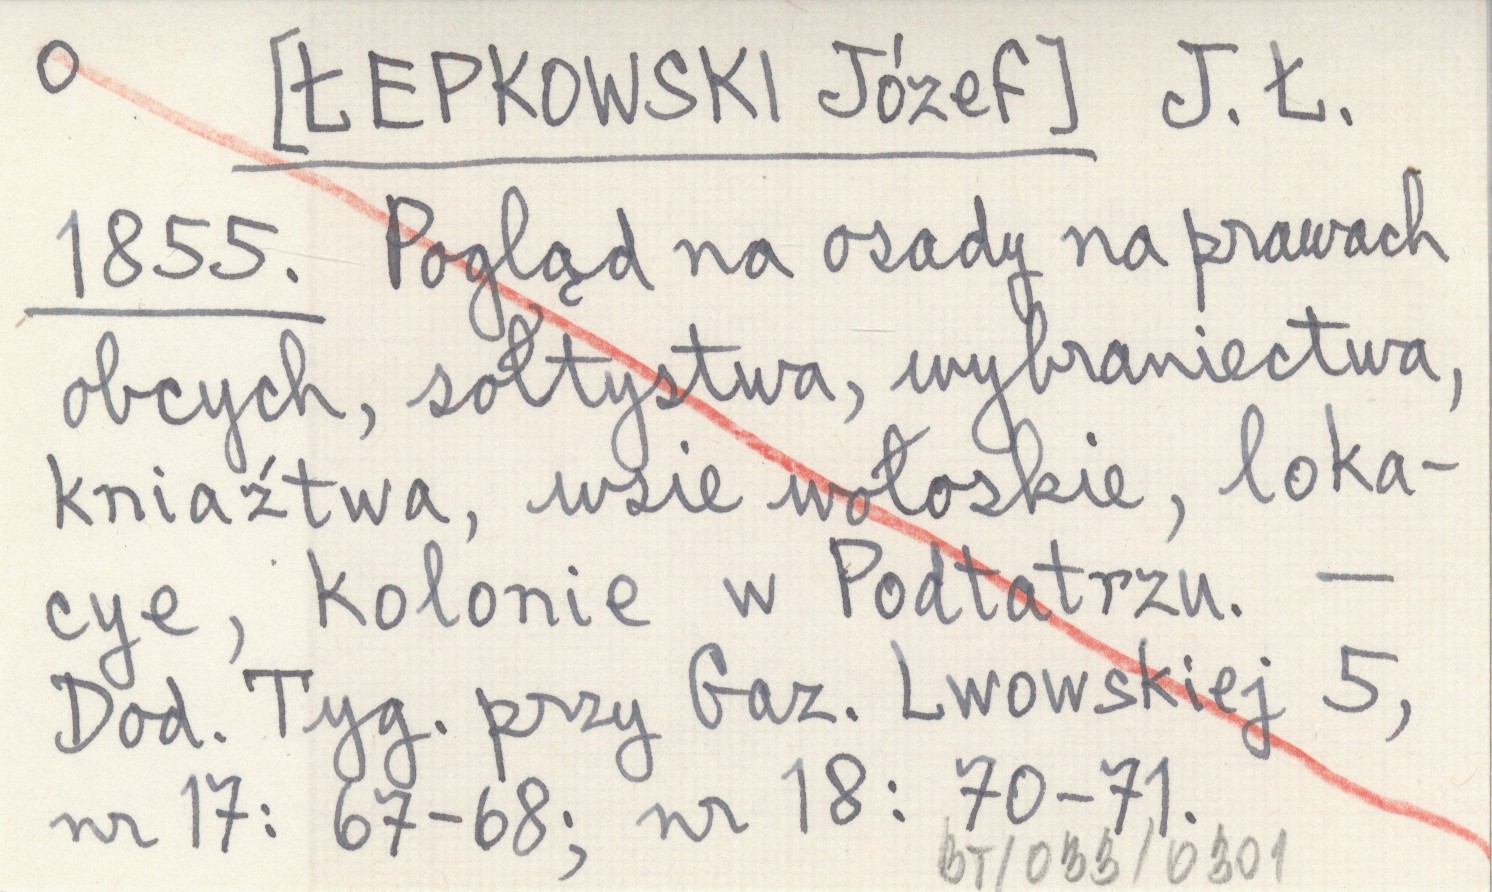 O [ŁEPKOWSKI Józef] J. Ł.
1855. Pogląd na osady na prawach
obcych, sołtystwa, wybraniectwa,
kniaźtwa, wsie wołoskie, loka-
cye, kolonie w Podtatrzu. —
Dod. Tyg. przy Gaz. Lwowskiej 5,
nr 17: 67-68; nr 18: 70-71.
BT/033/0301